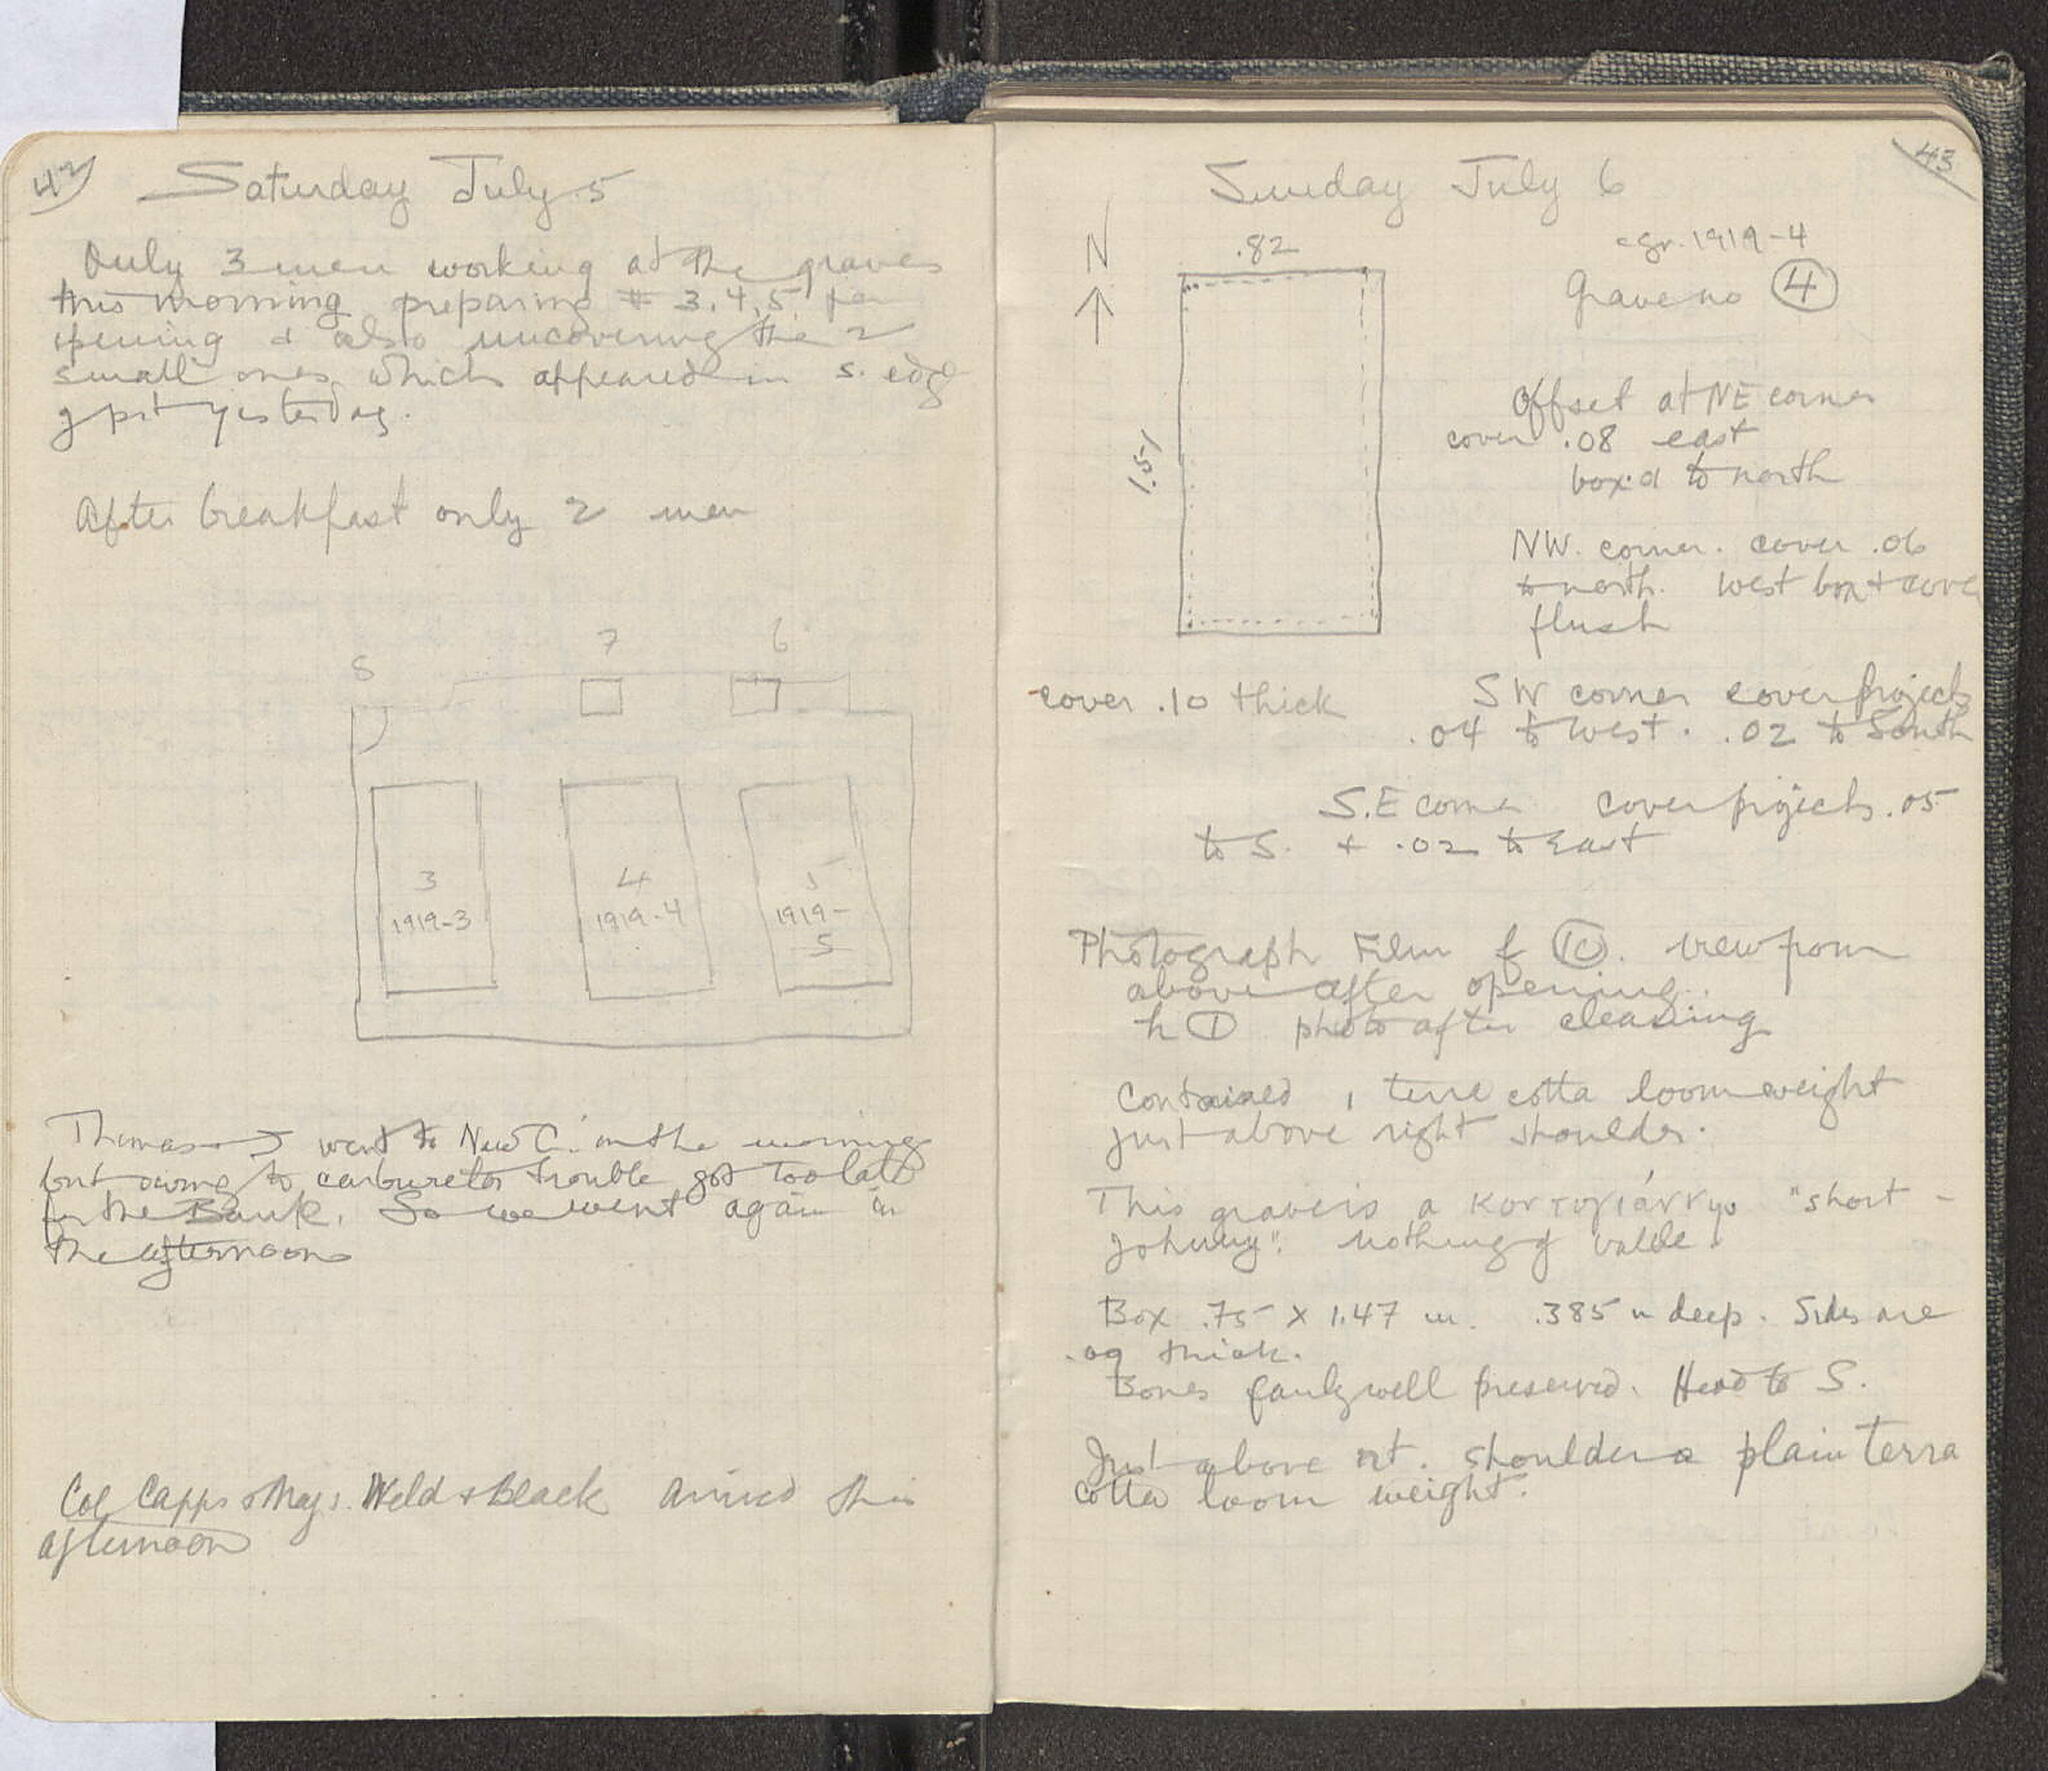 42
Saturday July 5
Only 3 men working at the graves
this morning preparing # 3, 4, 5 for
opening & also uncovering the 2
small ones which appeared in S. edge
of pit yesterday.
After breakfast only 2 men
8
7
6
3
1919-3
4
1919-4
5
1919-
5
Thomas & I went to New C. in the morning
but owing to carburetor trouble got too late
for the Bank. So we went again in
the afternoon
Col Capps & Majs. Weld & Black arrived this
afternoon
43
Sunday July 6
N
.82
1.51
cgr. 1919-4
Grave no 4
Offset at NE corner
cover .08 east
box to north
NW. corner. cover .06
to north. West box & cover
flush
cover .10 thick
SW corner cover projects
.04 to west. .02 to South
S.E corner cover projects .05
to S. & .02 to East
Photograph Film f 10. view from
above after opening.
h 1 photo after cleaning
Contained 1 terra cotta loomweight
just above right shoulder.
This grave is a "short-
Johnny". nothing of value.
Box .75 x 1.47 m. .385 m deep. Sides are
.09 thick.
Bones fairly well preserved. Head to S.
Just above rt. shoulder a plain terra
cotta loom weight.